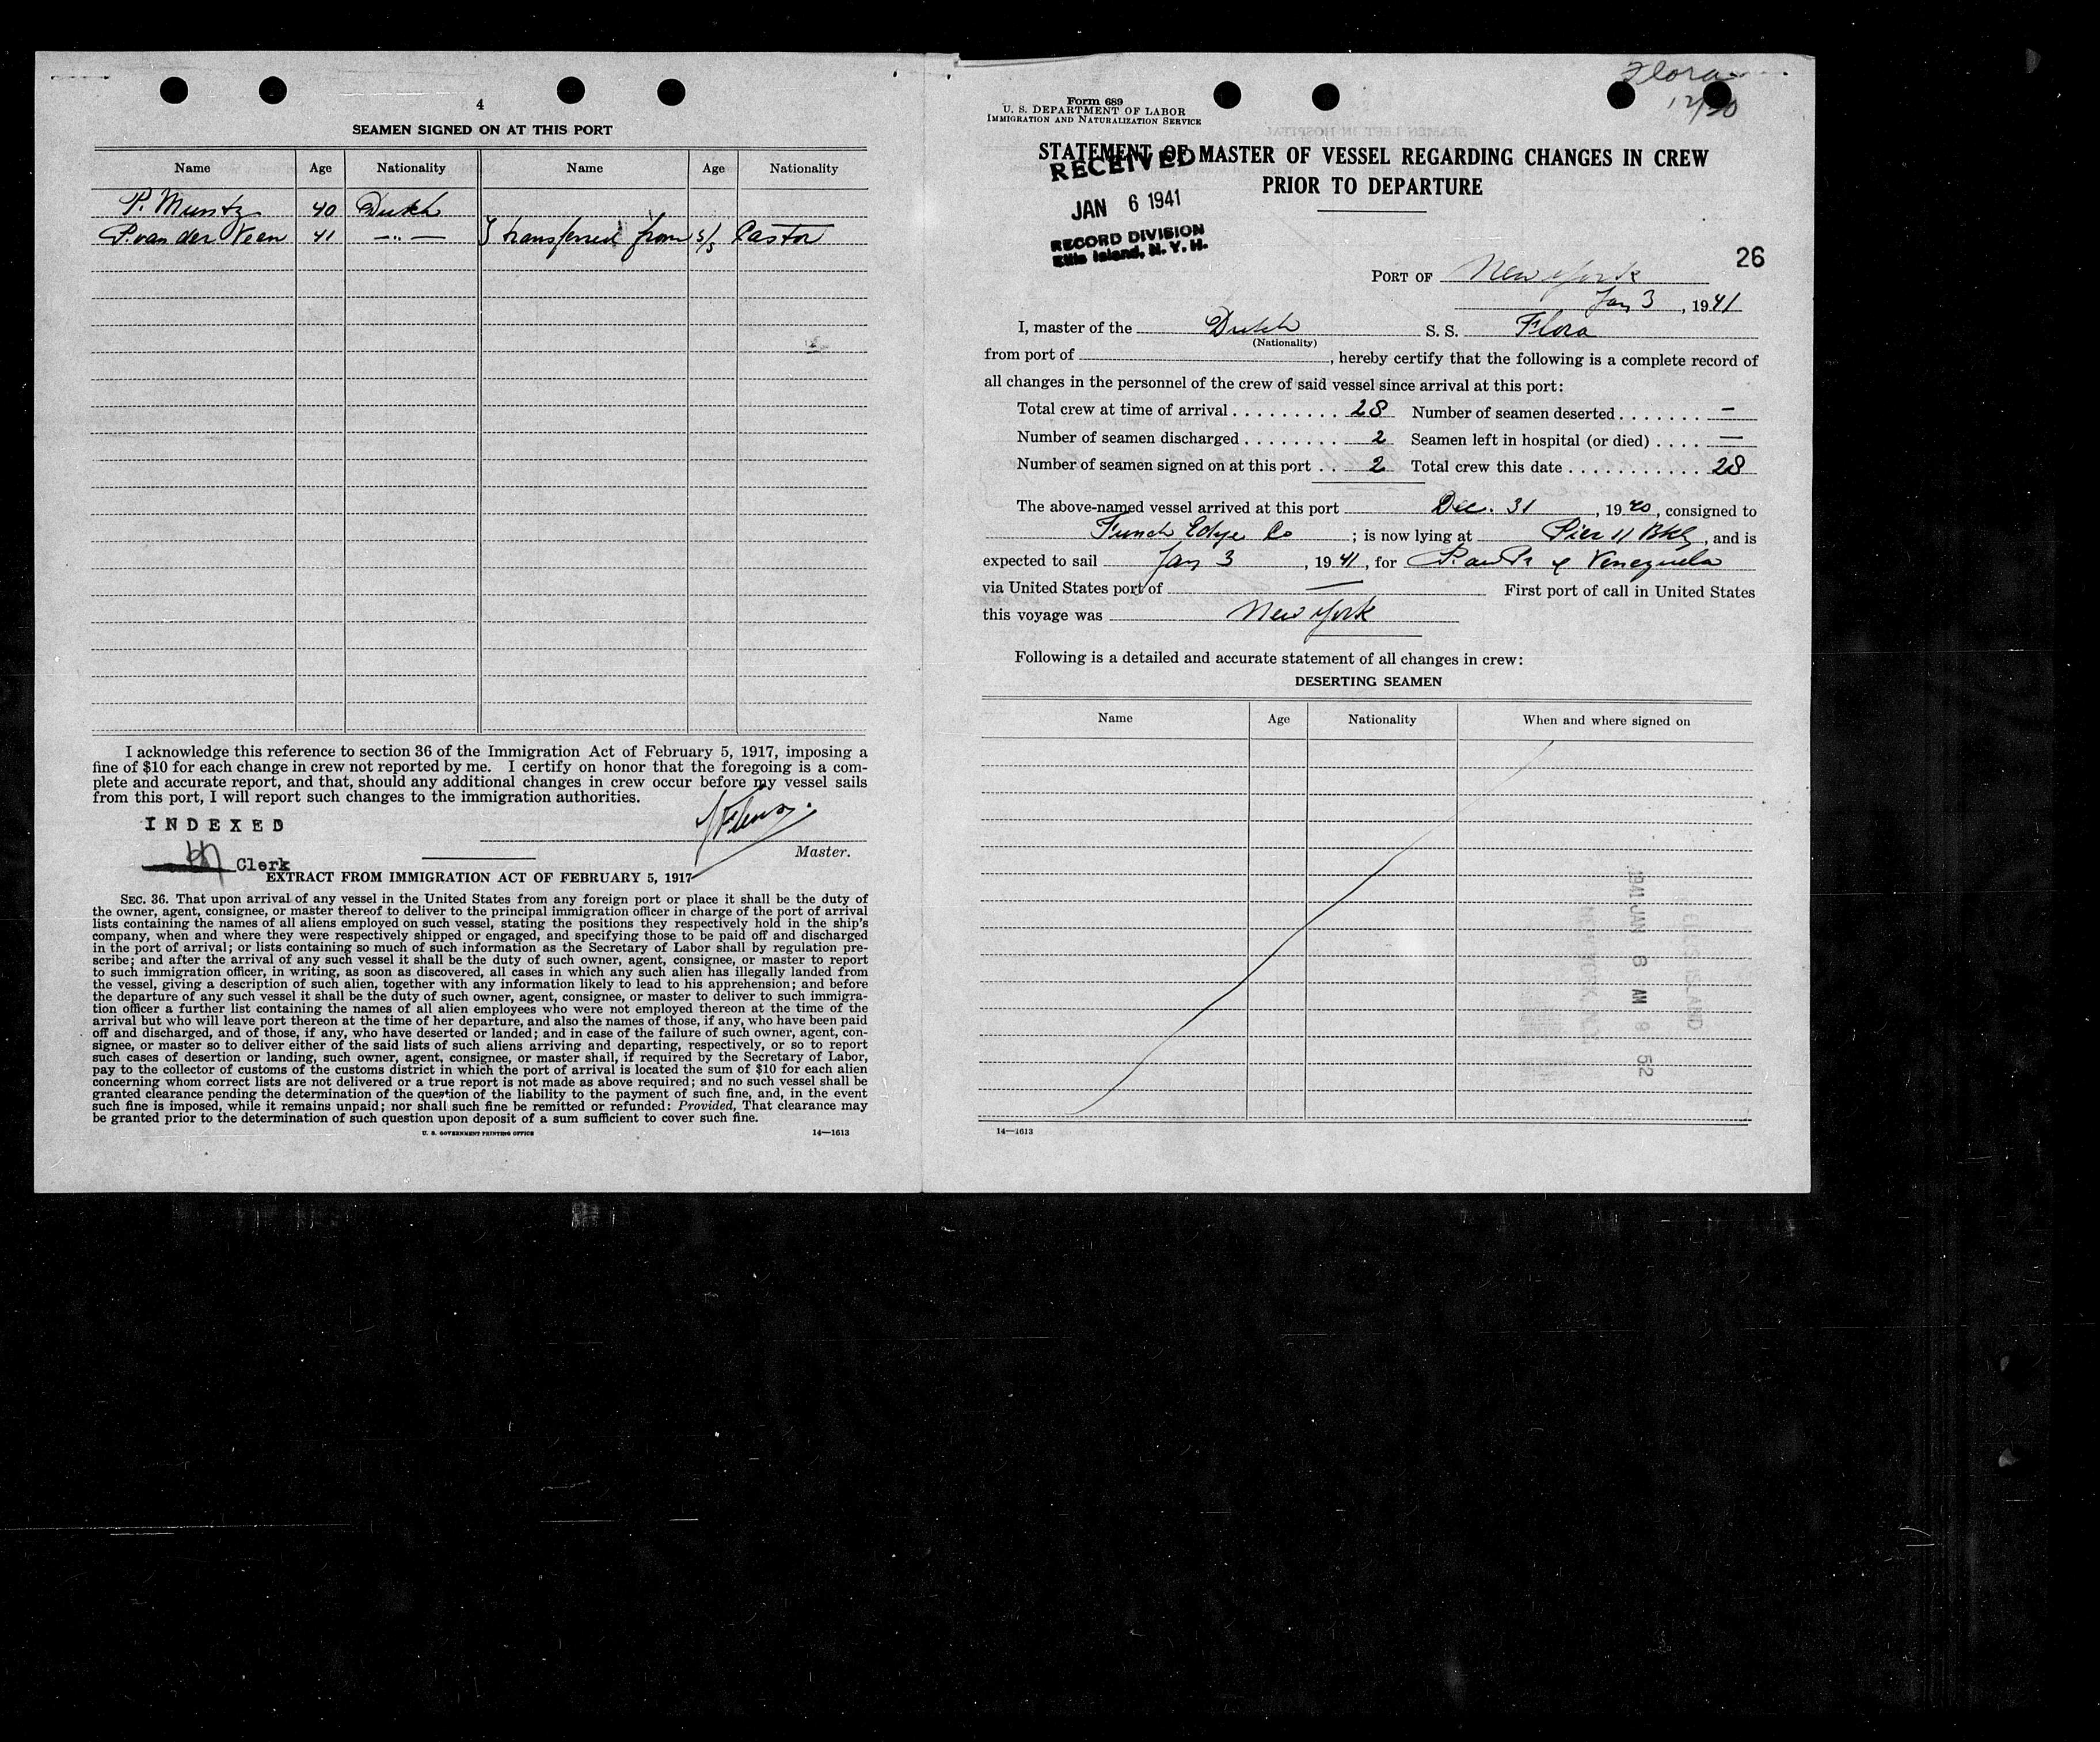 4
SEAMEN SIGNED ON AT THIS PORT
Name Age Nationality Name Age Nationality
P. Muntz 40 Dutch
P. van der Veen 41 —"— } transferred from s/s Castor
I acknowledge this reference to section 36 of the Immigration Act of February 5, 1917, imposing a
fine of $10 for each change in crew not reported by me. I certify on honor that the foregoing is a com-
plete and accurate report, and that, should any additional changes in crew occur before my vessel sails
from this port, I will report such changes to the immigration authorities.
INDEXED
Master.
Clerk
EXTRACT FROM IMMIGRATION ACT OF FEBRUARY 5, 1917
SEC. 36. That upon arrival of any vessel in the United States from any foreign port or place it shall be the duty of
the owner, agent, consignee, or master thereof to deliver to the principal immigration officer in charge of the port of arrival
lists containing the names of all aliens employed on such vessel, stating the positions they respectively hold in the ship's
company, when and where they were respectively shipped or engaged, and specifying those to be paid off and discharged
in the port of arrival; or lists containing so much of such information as the Secretary of Labor shall by regulation pre-
scribe; and after the arrival of any such vessel it shall be the duty of such owner, agent, consignee, or master to report
to such immigration officer, in writing, as soon as discovered, all cases in which any such alien has illegally landed from
the vessel, giving a description of such alien, together with any information likely to lead to his apprehension; and before
the departure of any such vessel it shall be the duty of such owner, agent, consignee, or master to deliver to such immigra-
tion officer a further list containing the names of all alien employees who were not employed thereon at the time of the
arrival but who will leave port thereon at the time of her departure, and also the names of those, if any, who have been paid
off and discharged, and of those, if any, who have deserted or landed; and in case of the failure of such owner, agent, con-
signee, or master so to deliver either of the said lists of such aliens arriving and departing, respectively, or so to report
such cases of desertion or landing, such owner, agent, consignee, or master shall, if required by the Secretary of Labor,
pay to the collector of customs of the customs district in which the port of arrival is located the sum of $10 for each alien
concerning whom correct lists are not delivered or a true report is not made as above required; and no such vessel shall be
granted clearance pending the determination of the question of the liability to the payment of such fine, and, in the event
such fine is imposed, while it remains unpaid; nor shall such fine be remitted or refunded: Provided, That clearance may
be granted prior to the determination of such question upon deposit of a sum sufficient to cover such fine.
U. S. GOVERNMENT PRINTING OFFICE 14—1613
Flora
12/30
Form 689
U. S. DEPARTMENT OF LABOR
IMMIGRATION AND NATURALIZATION SERVICE
STATEMENT OF MASTER OF VESSEL REGARDING CHANGES IN CREW
PRIOR TO DEPARTURE
RECEIVED
JAN 6 1941
RECORD DIVISION
Ellis Island, N. Y. H.
26
PORT OF New York
Jan 3, 1941
I, master of the Dutch S. S. Flora
(Nationality)
from port of , hereby certify that the following is a complete record of
all changes in the personnel of the crew of said vessel since arrival at this port:
Total crew at time of arrival . . . . . . . . . 28 Number of seamen deserted . . . . . . . —
Number of seamen discharged . . . . . . . . 2 Seamen left in hospital (or died) . . . . —
Number of seamen signed on at this port . . 2 Total crew this date . . . . . . . . . . . 28
The above-named vessel arrived at this port Dec. 31, 1940, consigned to
Funch Edye Co ; is now lying at Pier 11 Bkly, and is
expected to sail Jan 3, 1941, for P. au Pr & Venezuela
via United States port of — First port of call in United States
this voyage was New York
Following is a detailed and accurate statement of all changes in crew:
DESERTING SEAMEN
Name Age Nationality When and where signed on
1941 JAN 6 AM 9 52
ELLIS ISLAND
14—1613